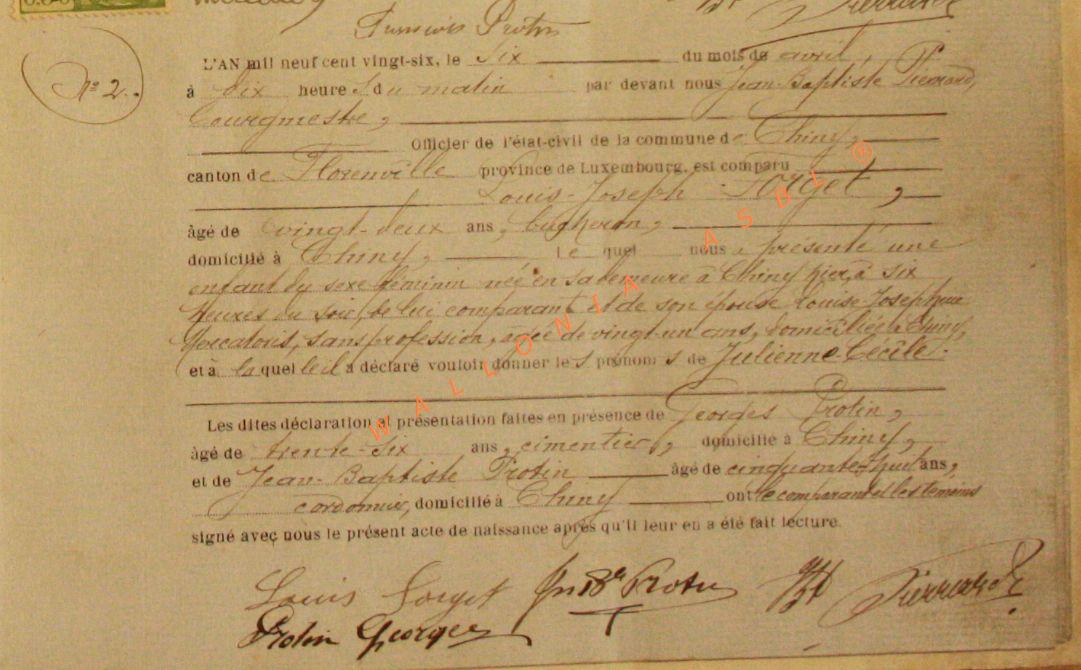 François Protin
L'AN mil neuf cent vingt-six, le Six du mois de avril
N° 2.
à Dix heures du matin par devant nous Jean-Baptiste Pierrard,
Bourgmestre,
Officier de l'état-civil de la commune de Chiny,
canton de Florenville province de Luxembourg, est comparu
Louis-Joseph Forget,
âgé de vingt-deux ans, bûcheron,
domicilié à Chiny, le quel nous a présenté une
enfant du sexe féminin née en sa demeure à Chiny hier, à six
heures du soir, de lui comparant et de son épouse Louise-Joséphine
Mercatoris, sans profession, âgée de vingt-un ans, domiciliée à Chiny,
et à la quelle il a déclaré vouloir donner les prénoms de Julienne Cécile.
Les dites déclaration et présentation faites en présence de Georges Protin,
âgé de trente-six ans, cimentier, domicilié à Chiny,
et de Jean-Baptiste Protin âgé de cinquante-huit ans,
cordonnier, domicilié à Chiny ont le comparant et les témoins
signé avec nous le présent acte de naissance après qu'il leur en a été fait lecture.
Louis Forget Jn Bte Protin JBt Pierrard
Protin Georges
WALLONIA ASBL ®